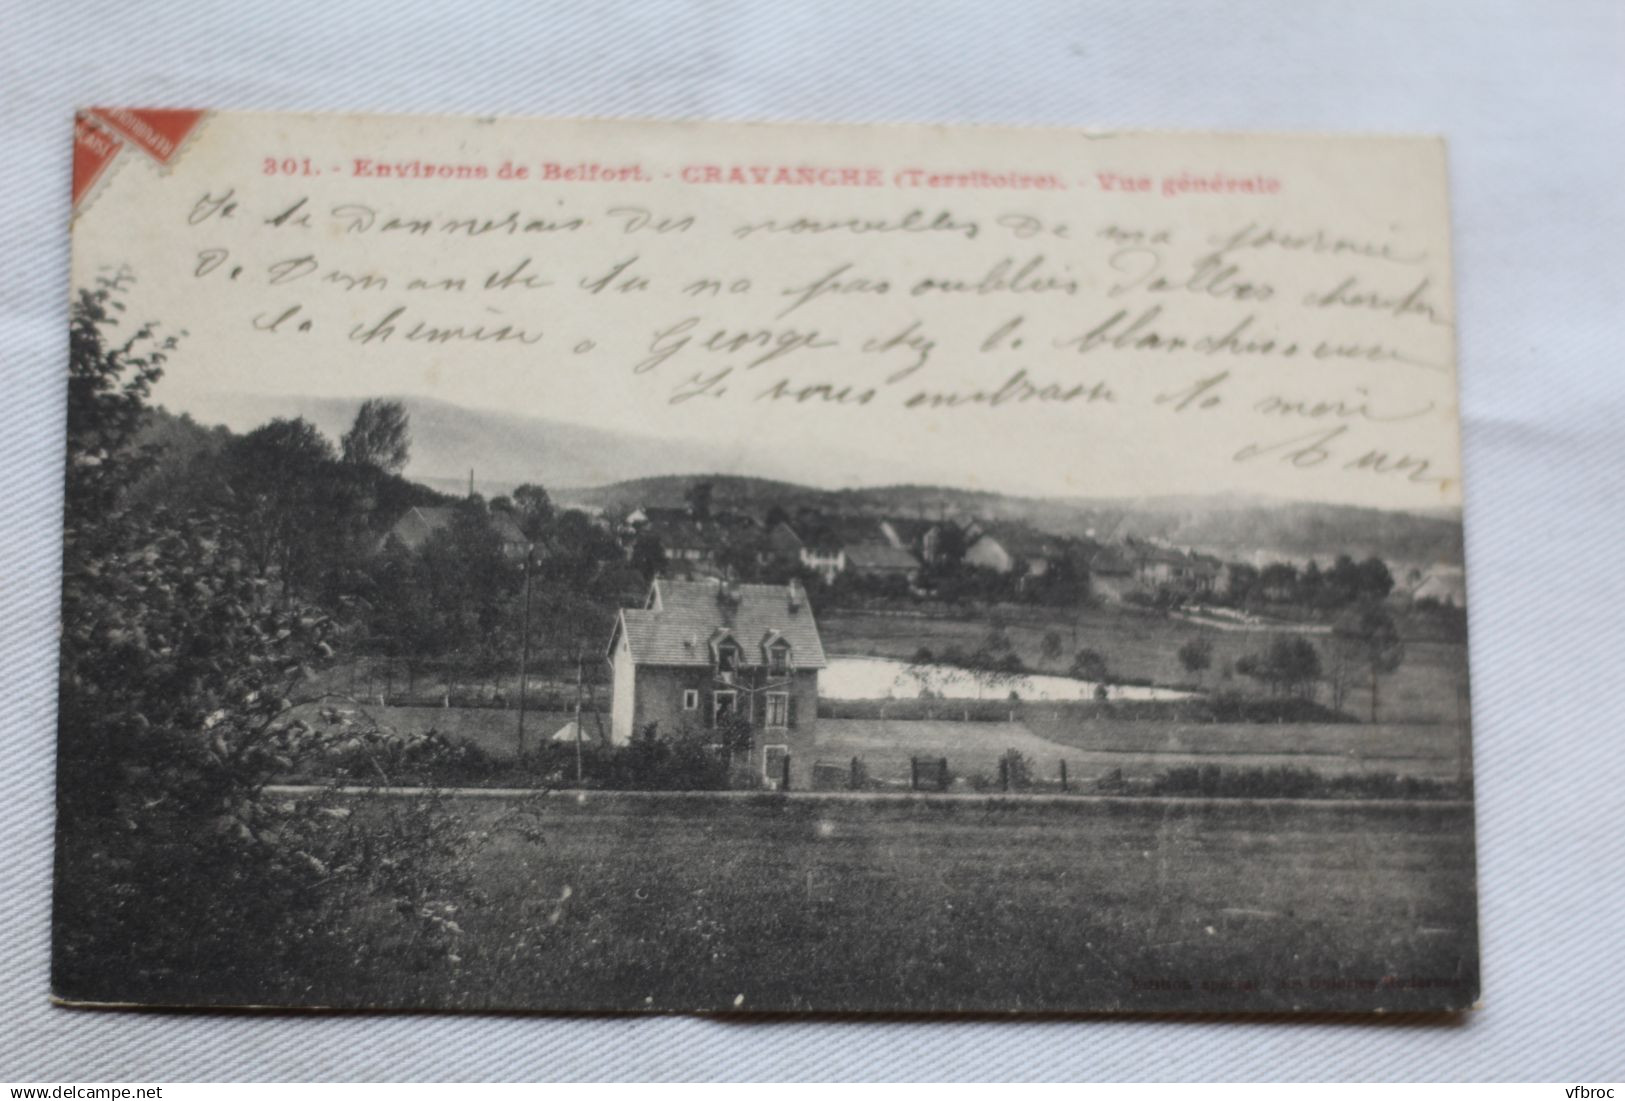 301. - Environs de Belfort. - CRAVANCHE (Territoire). - Vue générale
Je te Donnerais Des nouvelles De ma journeé
De Dimanche tu na pas oubliés D'alles chercher
la chemise a George chez la blanchisseuse
Je vous embrasse ta meré
REPUBLIQUE
Edition spéciale des Galeries Modernes
www.delcampe.net
vfbroc